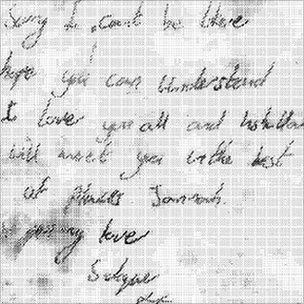 Sorry I can't be there
hope you can understand
I love you all and
will meet you in the best
of places
my love